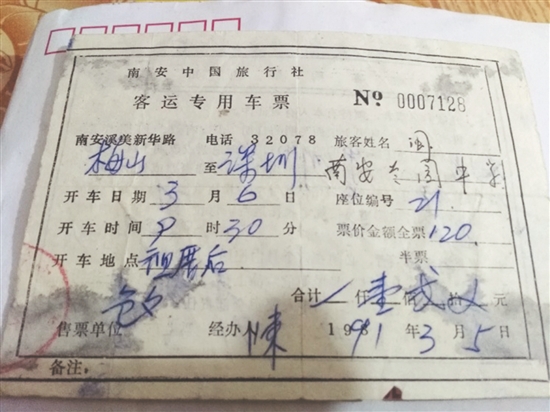 南安中国旅行社
客运专用车票 Nº 0007128
南安溪美新华路 电话 32078 旅客姓名
梅山 至 深圳 南安
开车日期 3 月 6 日 座位编号 21
开车时间 P 时 30 分 票价金额全票 120
开车地点 祖厝后 半票
合计 仟 壹 佰 贰 拾 元
售票单位 经办 陈 1991 年 3 月 5 日
备注：